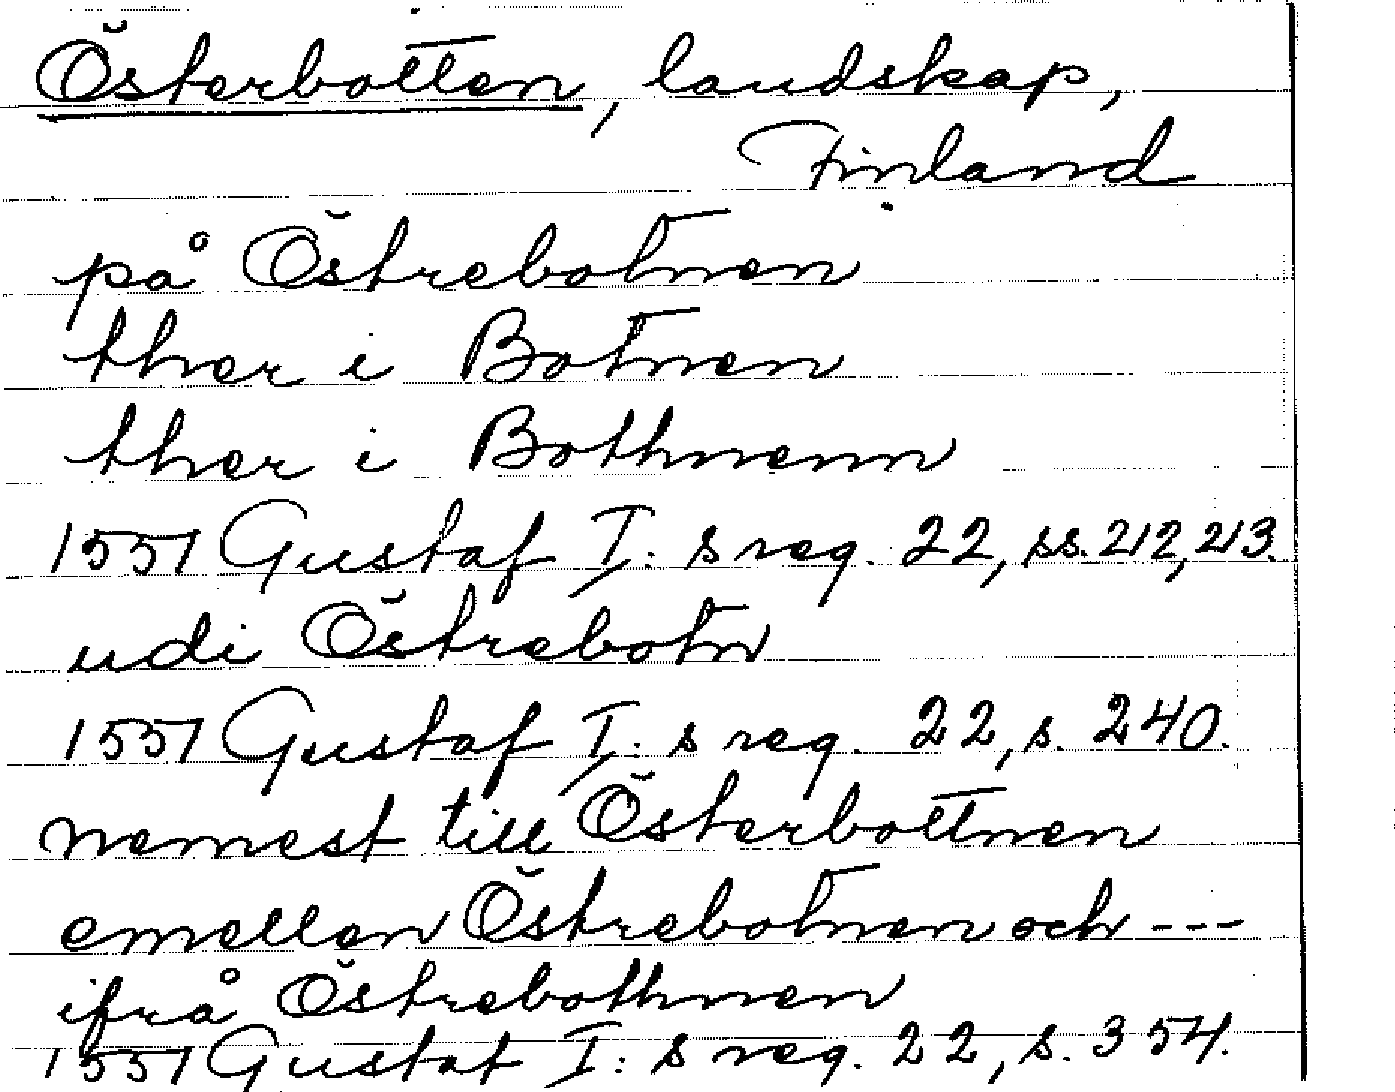 Österbotten, landskap,
Finland
på Östrebotnen
ther i Botnen
ther i Bothnenn
1551 Gustaf I:s reg. 22, ss. 212, 213.
udi Östrebotn
1551 Gustaf I:s reg. 22, s. 240.
nemest till Österbottnen
emellen Östrebotnen och ---
ifrå Östrebothnen
1551 Gustaf I:s reg. 22, s. 354.